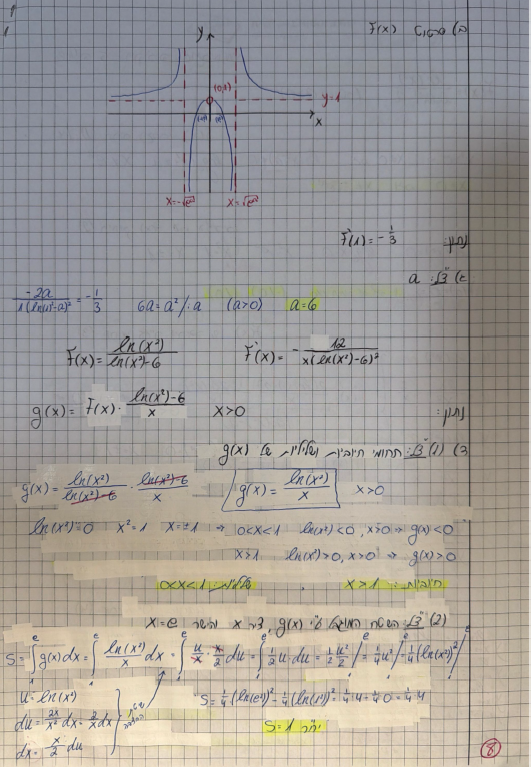 ב) סרטוט F(x)
y
(0,1)
y=1
x
x=-√e^a x=√e^a
נתון: F'(1) = -1/3
ג) צ"ל: a
-2a/1(ln(1)²-a)² = -1/3 6a=a² /:a (a>0) a=6
F(x) = ln(x²)/ln(x²)-6 F'(x) = - 12/x(ln(x²)-6)²
נתון: g(x) = F(x) · ln(x²)-6/x x>0
ד) (1) צ"ל: תחומי חיוביות ושליליות של g(x)
g(x) = ln(x²)/ln(x²)-6 · ln(x²)-6/x g(x) = ln(x²)/x x>0
ln(x²)=0 x²=1 x=±1 → 0<x<1 ln(x²)<0, x>0 → g(x)<0
x>1 ln(x²)>0, x>0 → g(x)>0
חיוביות: x>1 , שליליות: 0<x<1
(2) צ"ל: השטח המוגבל ע"י g(x), ציר x והישר x=e
S = ∫₁ᵉ g(x)dx = ∫₁ᵉ ln(x²)/x dx = ∫₁ᵉ u/x · x/2 du = ∫₁ᵉ 1/2 u·du = 1/2 u²/2 /₁ᵉ = 1/4 u² /₁ᵉ = 1/4 (ln(x²))² /₁ᵉ
u = ln(x²)
du = 2x/x² dx = 2/x dx
dx = x/2 du
S = 1/4 (ln(e²))² - 1/4 (ln(1²))² = 1/4·4 - 1/4·0 = 1/4·4
S = 1 יח"ר
8